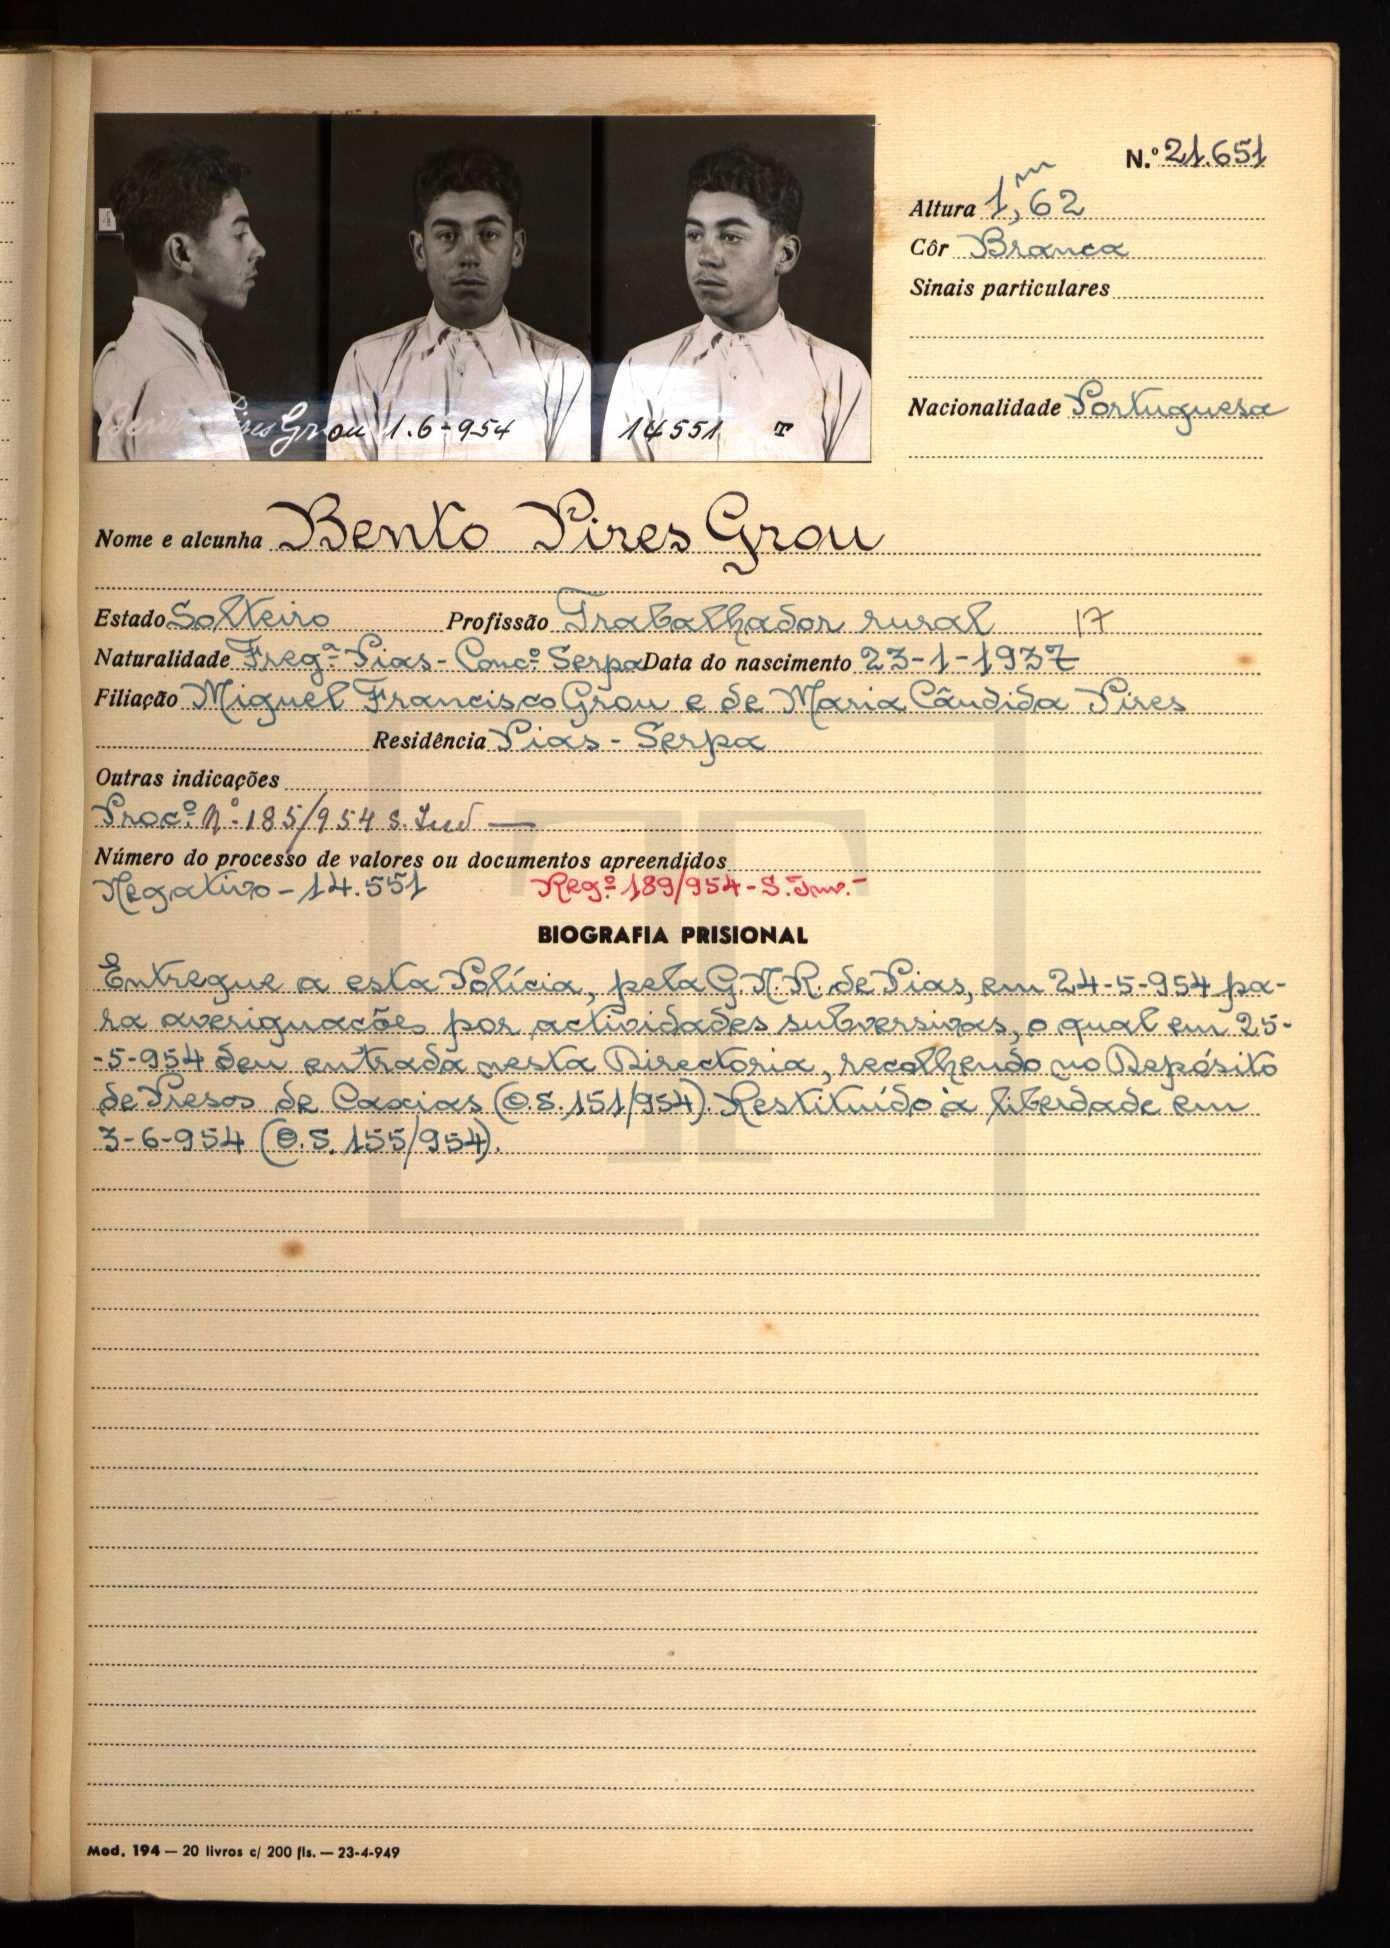 N.º 21.651
Altura 1,62 m
Côr Branca
Sinais particulares
Nacionalidade Portuguesa
Bento Pires Grou 1.6-954 14551 T
Nome e alcunha Bento Pires Grou
Estado Solteiro Profissão Trabalhador rural 17
Naturalidade Fregª Pias - Concº Serpa Data do nascimento 23-1-1937
Filiação Miguel Francisco Grou e de Maria Cândida Pires
Residência Pias - Serpa
Outras indicações
Procº Nº 185/954 S.
Número do processo de valores ou documentos apreendidos
Negativo - 14.551 Regº 189/954 - S. Inv. -
BIOGRAFIA PRISIONAL
Entregue a esta Polícia, pela G.N.R. de Pias, em 24-5-954 pa-
ra averiguacões por actividades subversivas, o qual em 25-
-5-954 deu entrada nesta Directoria, recolhendo no Depósito
de Presos de Caxias (O.S. 151/954). Restituído à liberdade em
3-6-954 (O.S. 155/954).
Mod. 194 — 20 livros c/ 200 fls. — 23-4-949